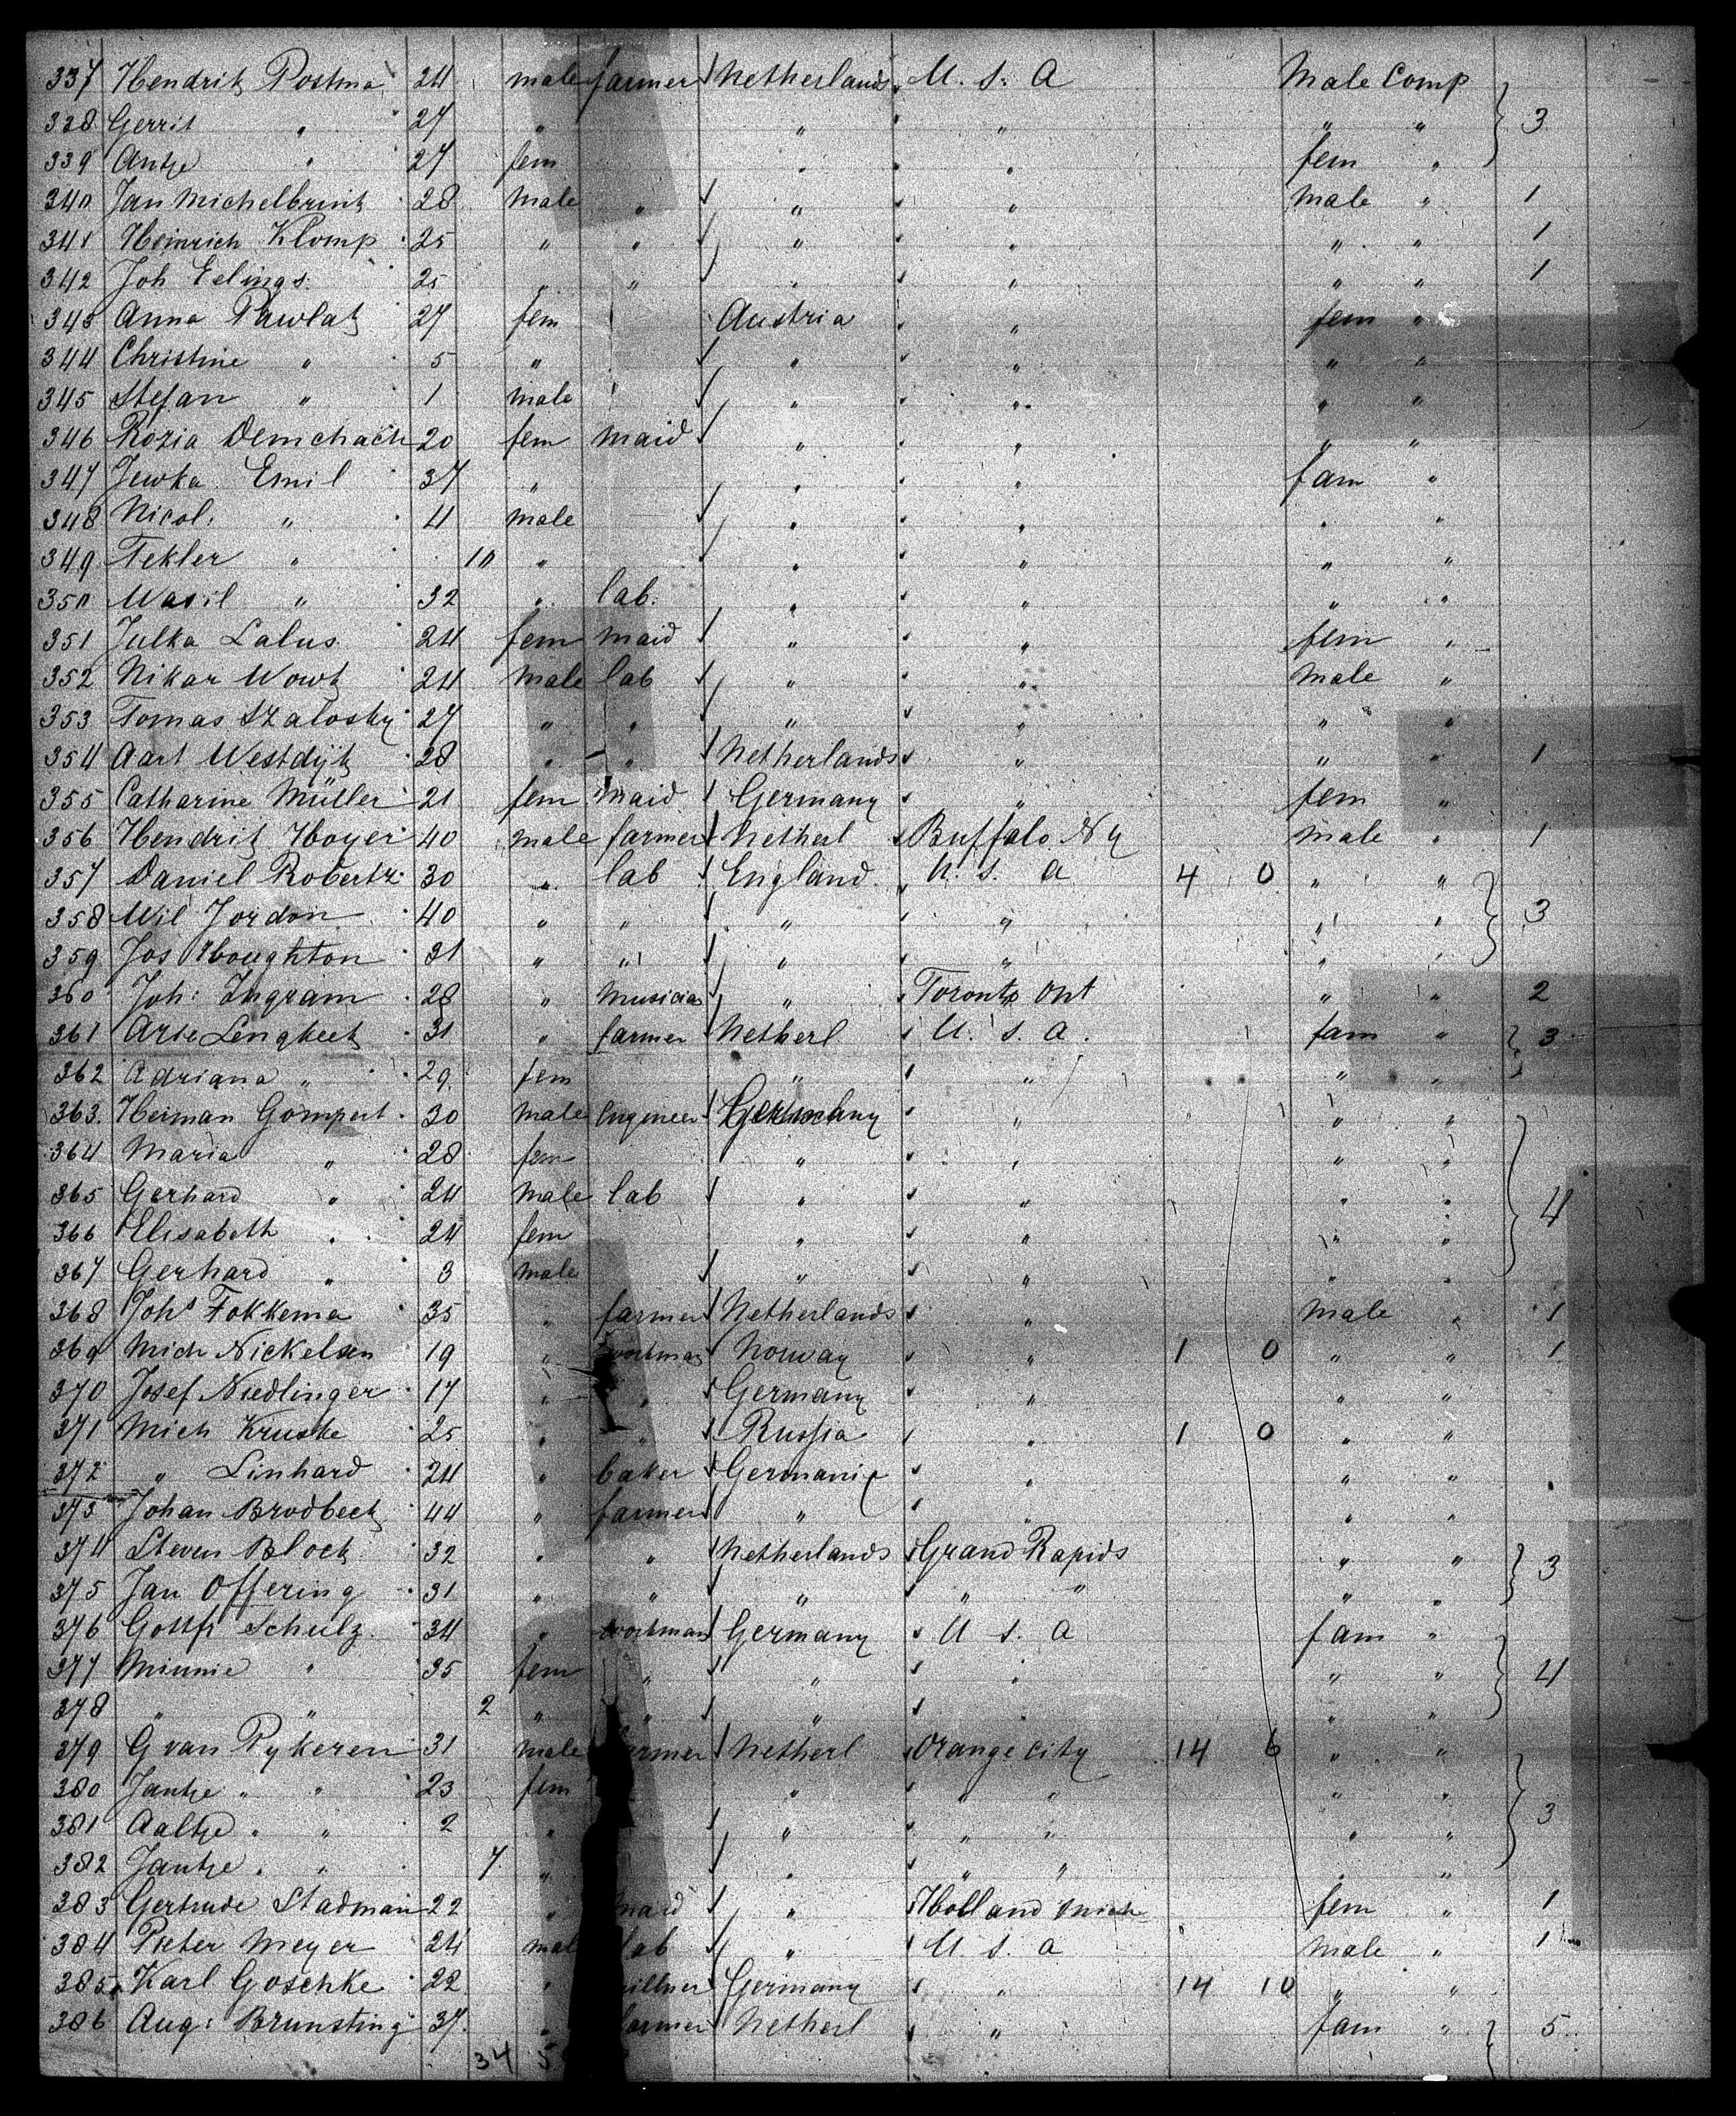 337 Hendrik Postma 24 male farmer Netherlands U. S. A Male Comp
338 Gerrit " 27 " " " " " 3
339 Antje " 27 fem " " fem "
340 Jan Michelbrink 28 male " " " male " 1
341 Heinrich Klomp 25 " " " " " " 1
342 Joh Eelings 25 " " " " " " 1
343 Anna Pawlak 27 fem Austria " fem "
344 Christine " 5 " " " " "
345 Stefan " 1 male " " " "
346 Rozia Demchach 20 fem maid " " " "
347 Jewka Emil 37 " " " fam "
348 Nicol. " 4 male " " " "
349 Tekler " 10 " " " " "
350 Wasil " 32 " lab. " " " "
351 Julka Labus 24 fem maid " " fem "
352 Nikar Wowk 24 male lab " " male "
353 Tomas Szalosky 27 " " " " " "
354 Aart Westdijk 28 " " Netherlands " " " 1
355 Catharine Müller 21 fem maid Germany " fem "
356 Hendrik Hoyer 40 male farmer Netherl Buffalo Ny male " 1
357 Daniel Robertz 30 " lab England U. S. A 4 0 " "
358 Wil Jordon 40 " " " " " " 3
359 Jos Houghton 31 " " " " " "
360 Joh: Ingram 28 " Musician " Toronto Ont " " 2
361 Arie Lengkeek 31 " farmer Netherl U. S. A. fam " 3
362 Adriana " 29 fem " " " "
363. Herman Gompert 30 male Engineer Germany " " "
364 Maria " 28 fem " " " "
365 Gerhard " 24 male lab " " " " 4
366 Elisabeth " 24 fem " " " "
367 Gerhard " 3 male " " " "
368 Johs Fokkema 35 " farmer Netherlands " male " 1
369 Mich Nickelsen 19 " Norway " 1 0 " " 1
370 Josef Niedlinger 17 " " Germany " " "
371 Mich Kruske 25 " " Russia " 1 0 " "
372 " Linhard 24 " baker " " "
373 Johan Brodbeck 44 " farmer " " " "
374 Steven Block 32 " " Netherlands Grand Rapids " " 3
375 Jan Offering 31 " " " " " " "
376 Gottfr Schulz 34 " Germany U S. A fam "
377 Minnie " 35 fem " " " " " 4
378 " " 2 " " " " " "
379 G van Pykeren 31 male Netherl Orange City 14 6 " "
380 Jantje " " 23 fem " " " " "
381 Aaltje " " 2 " " " " " " 3
382 Jantje " " 7 " " " " " "
383 Gertrude Stadman 22 " maid " Holland Mich fem " 1
384 Pieter Meyer 24 male lab " U S. A male " 1
385 Karl Goschke 22 " Germany " 14 10 " "
386 Aug: Brunsting 37 " farmer Netherl " fam " 5
34 5